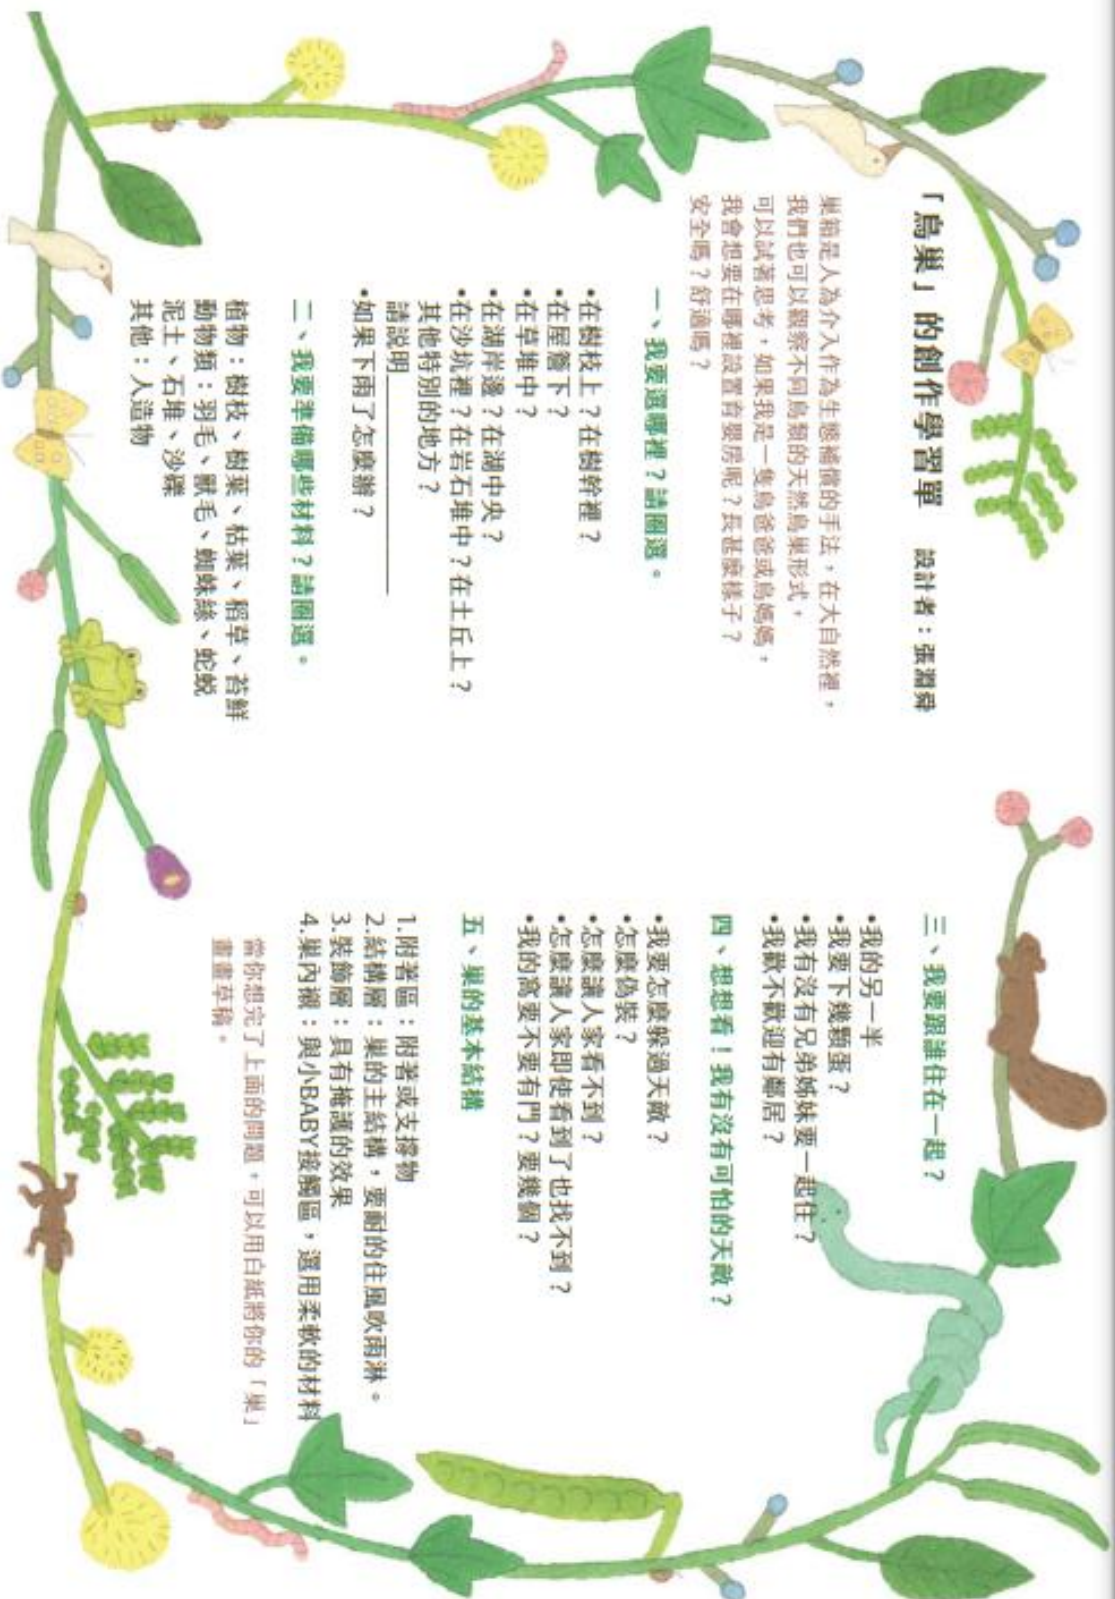 「鳥巢」的創作學習單 設計者：張淵舜
巢箱是人為介入作為生態補償的手法，在大自然裡，
我們也可以觀察不同鳥類的天然鳥巢形式，
可以試著思考，如果我是一隻鳥爸爸或鳥媽媽，
我會想要在哪裡設置育嬰房呢？長甚麼樣子？
安全嗎？舒適嗎？
一、我要選哪裡？請圈選。
•在樹枝上？在樹幹裡？
•在屋簷下？
•在草堆中？
•在湖岸邊？在湖中央？
•在沙坑裡？在岩石堆中？在土丘上？
其他特別的地方？
請說明
•如果下雨了怎麼辦？
二、我要準備哪些材料？請圈選。
植物：樹枝、樹葉、枯葉、稻草、苔鮮
動物類：羽毛、獸毛、蜘蛛絲、蛇蛻
泥土、石堆、沙礫
其他：人造物
三、我要跟誰住在一起？
•我的另一半
•我要下幾顆蛋？
•我有沒有兄弟姊妹要一起住？
•我歡不歡迎有鄰居？
四、想想看！我有沒有可怕的天敵？
•我要怎麼躲過天敵？
•怎麼偽裝？
•怎麼讓人家看不到？
•怎麼讓人家即使看到了也找不到？
•我的窩要不要有門？要幾個？
五、巢的基本結構
1.附著區：附著或支撐物
2.結構層：巢的主結構，要耐的住風吹雨淋。
3.裝飾層：具有掩護的效果
4.巢內襯：與小BABY接觸區，選用柔軟的材料
當你想完了上面的問題，可以用白紙將你的「巢」
畫畫草稿。